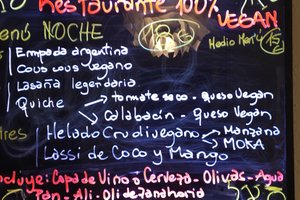 Restaurante 100%
VEGAN
Menú NOCHE
Medio Menú
Empada argentina
Cous cous vegano
Lasaña legendaria
Quiche → tomate seco - Queso Vegan
→ Calabacín - Queso Vegan
Helado Crudivegano → Manzana
→ MOKA
Lassi de Coco y Mango
Incluye: Copa de Vino o Cerveza - Olivas - Agua
Pan - Ali - Oli de Zanahoria